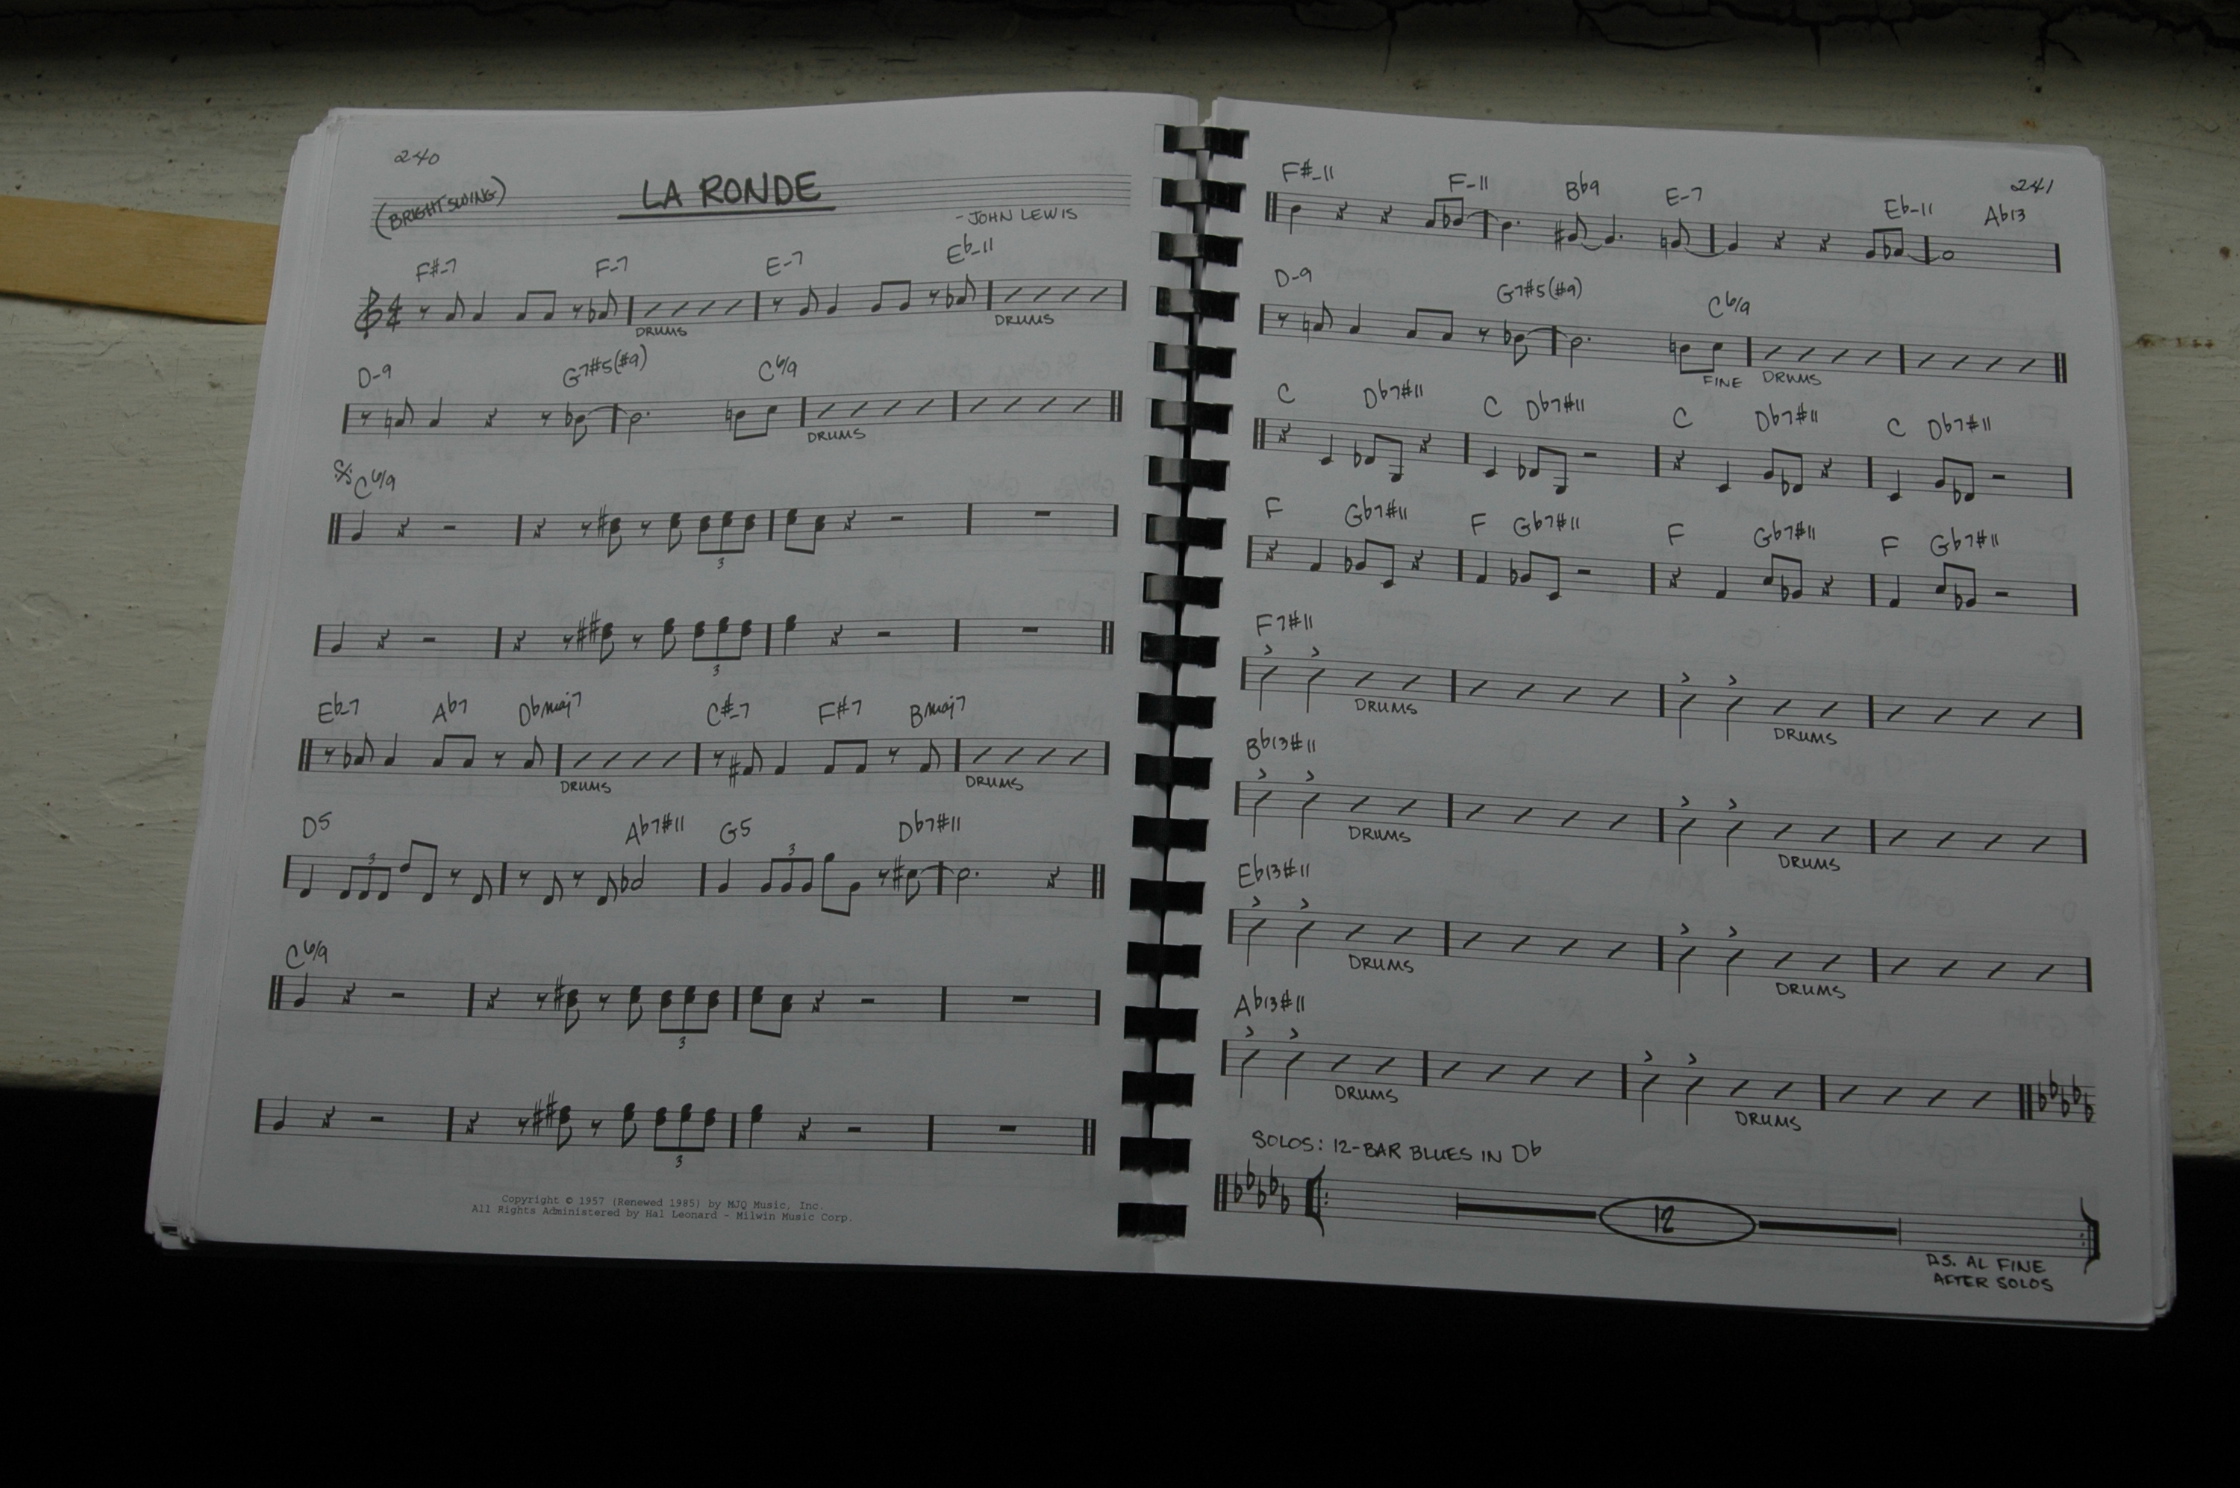 240
(BRIGHT SWING)
LA RONDE
-JOHN LEWIS
F#-7 F-7 E-7 Eb-11
DRUMS DRUMS
D-9 G7#5(#9) C6/9
DRUMS
C6/9
3
3
Eb-7 Ab7 Dbmaj7 C#-7 F#7 Bmaj7
DRUMS DRUMS
D5 Ab7#11 G5 Db7#11
3 3
C6/9
3
3
Copyright © 1957 (Renewed 1985) by MJQ Music, Inc.
All Rights Administered by Hal Leonard - Milwin Music Corp.
241
F#-11 F-11 Bb9 E-7 Eb-11 Ab13
D-9 G7#5(#9) C6/9
FINE DRUMS
C Db7#11 C Db7#11 C Db7#11 C Db7#11
F Gb7#11 F Gb7#11 F Gb7#11 F Gb7#11
F7#11
DRUMS DRUMS
Bb13#11
DRUMS DRUMS
Eb13#11
DRUMS DRUMS
Ab13#11
DRUMS DRUMS
SOLOS: 12-BAR BLUES IN Db
12
D.S. AL FINE
AFTER SOLOS